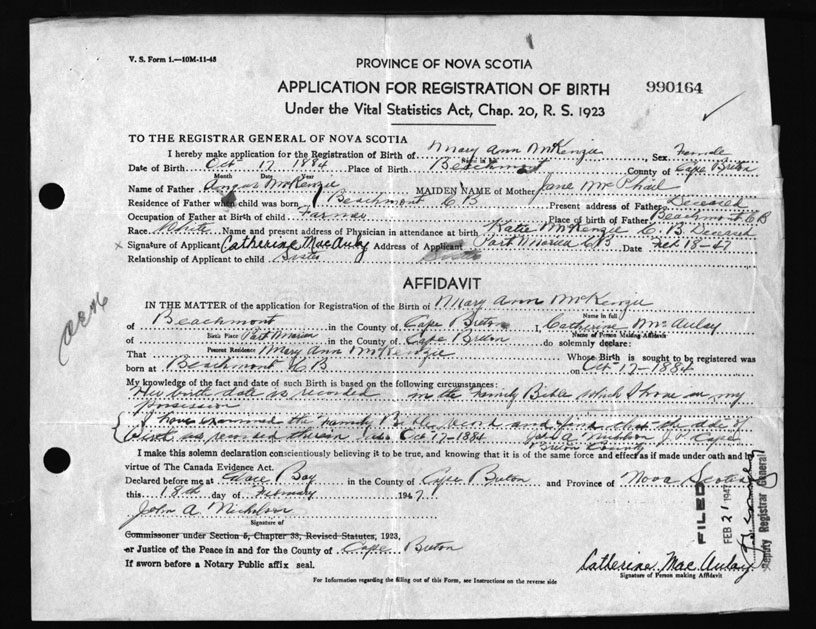 V. S. Form 1.—10M-11-45
PROVINCE OF NOVA SCOTIA
APPLICATION FOR REGISTRATION OF BIRTH 990164
Under the Vital Statistics Act, Chap. 20, R. S. 1923
TO THE REGISTRAR GENERAL OF NOVA SCOTIA
I hereby make application for the Registration of Birth of Mary Ann McKenzie Sex Female
Date of Birth Oct 17 1884 Place of Birth Beachmont County of Cape Breton
Month Date Year
Name of Father Angus McKenzie MAIDEN NAME of Mother Jane McPhail
Residence of Father when child was born Beachmont C B Present address of Father Deceased
Occupation of Father at Birth of child Farmer Place of birth of Father Beachmont C B
Race White Name and present address of Physician in attendance at birth Katie McKenzie C. B. Deceased
x Signature of Applicant Catherine MacAulay Address of Applicant Port Morien C B Date Feb 18-47
Relationship of Applicant to child Sister
AFFIDAVIT
IN THE MATTER of the application for Registration of the Birth of Mary Ann McKenzie
Name in full
of Beachmont in the County of Cape Breton I, Catherine McAulay
Birth Place Name of Person Making Affidavit
of Port Morien in the County of Cape Breton do solemnly declare:
Present Residence
That Mary Ann McKenzie Whose Birth is sought to be registered was
born at Beachmont C B on Oct 17-1884
My knowledge of the fact and date of such Birth is based on the following circumstances:
Her birth date is recorded in the Family Bible which I have in my
possession
I have examined the Family Bible record and find that the date of
birth as recorded therein is Oct 17-1884 John A Nicholson J. P. Cape
Breton County
I make this solemn declaration conscientiously believing it to be true, and knowing that it is of the same force and effect as if made under oath and by
virtue of The Canada Evidence Act.
Declared before me at Glace Bay in the County of Cape Breton and Province of Nova Scotia
this 18th day of February 1947
John A Nicholson
Signature of
Commissioner under Section 5, Chapter 33, Revised Statutes, 1923,
or Justice of the Peace in and for the County of Cape Breton
If sworn before a Notary Public affix seal.
Catherine Mac Aulay
Signature of Person making Affidavit
For Information regarding the filling out of this Form, see Instructions on the reverse side
FILED
FEB 21 1947
Deputy Registrar General